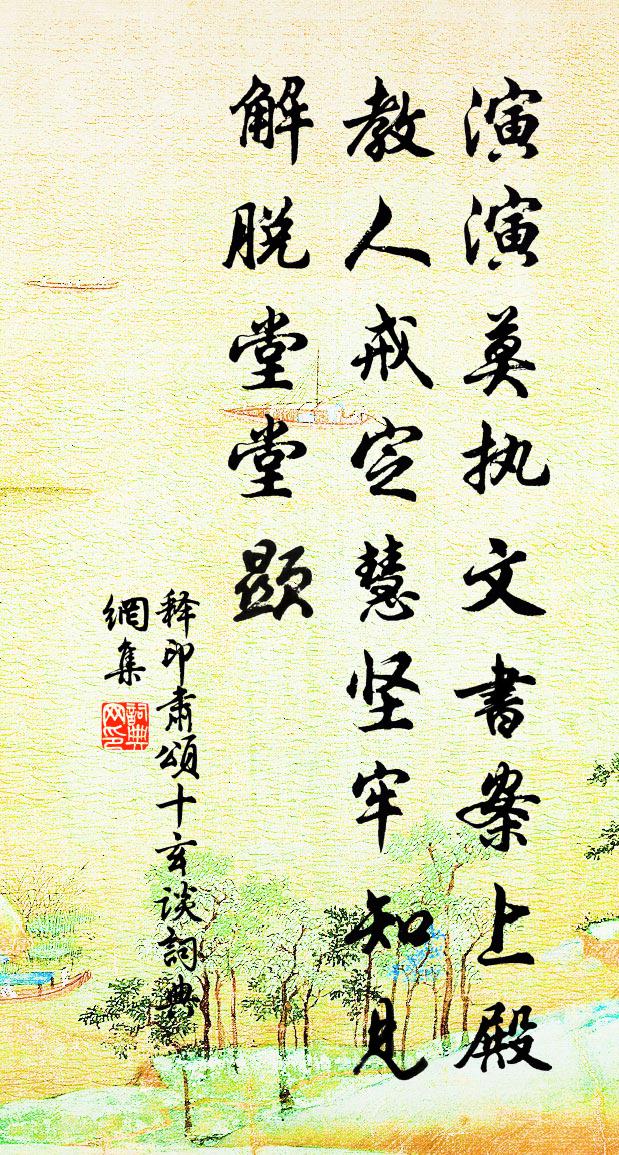 演演莫执文书案上殿
教人戒定慧坚牢知见
解脱堂堂顕
释印肃颂十玄谈詞典
網集
詞典
网印